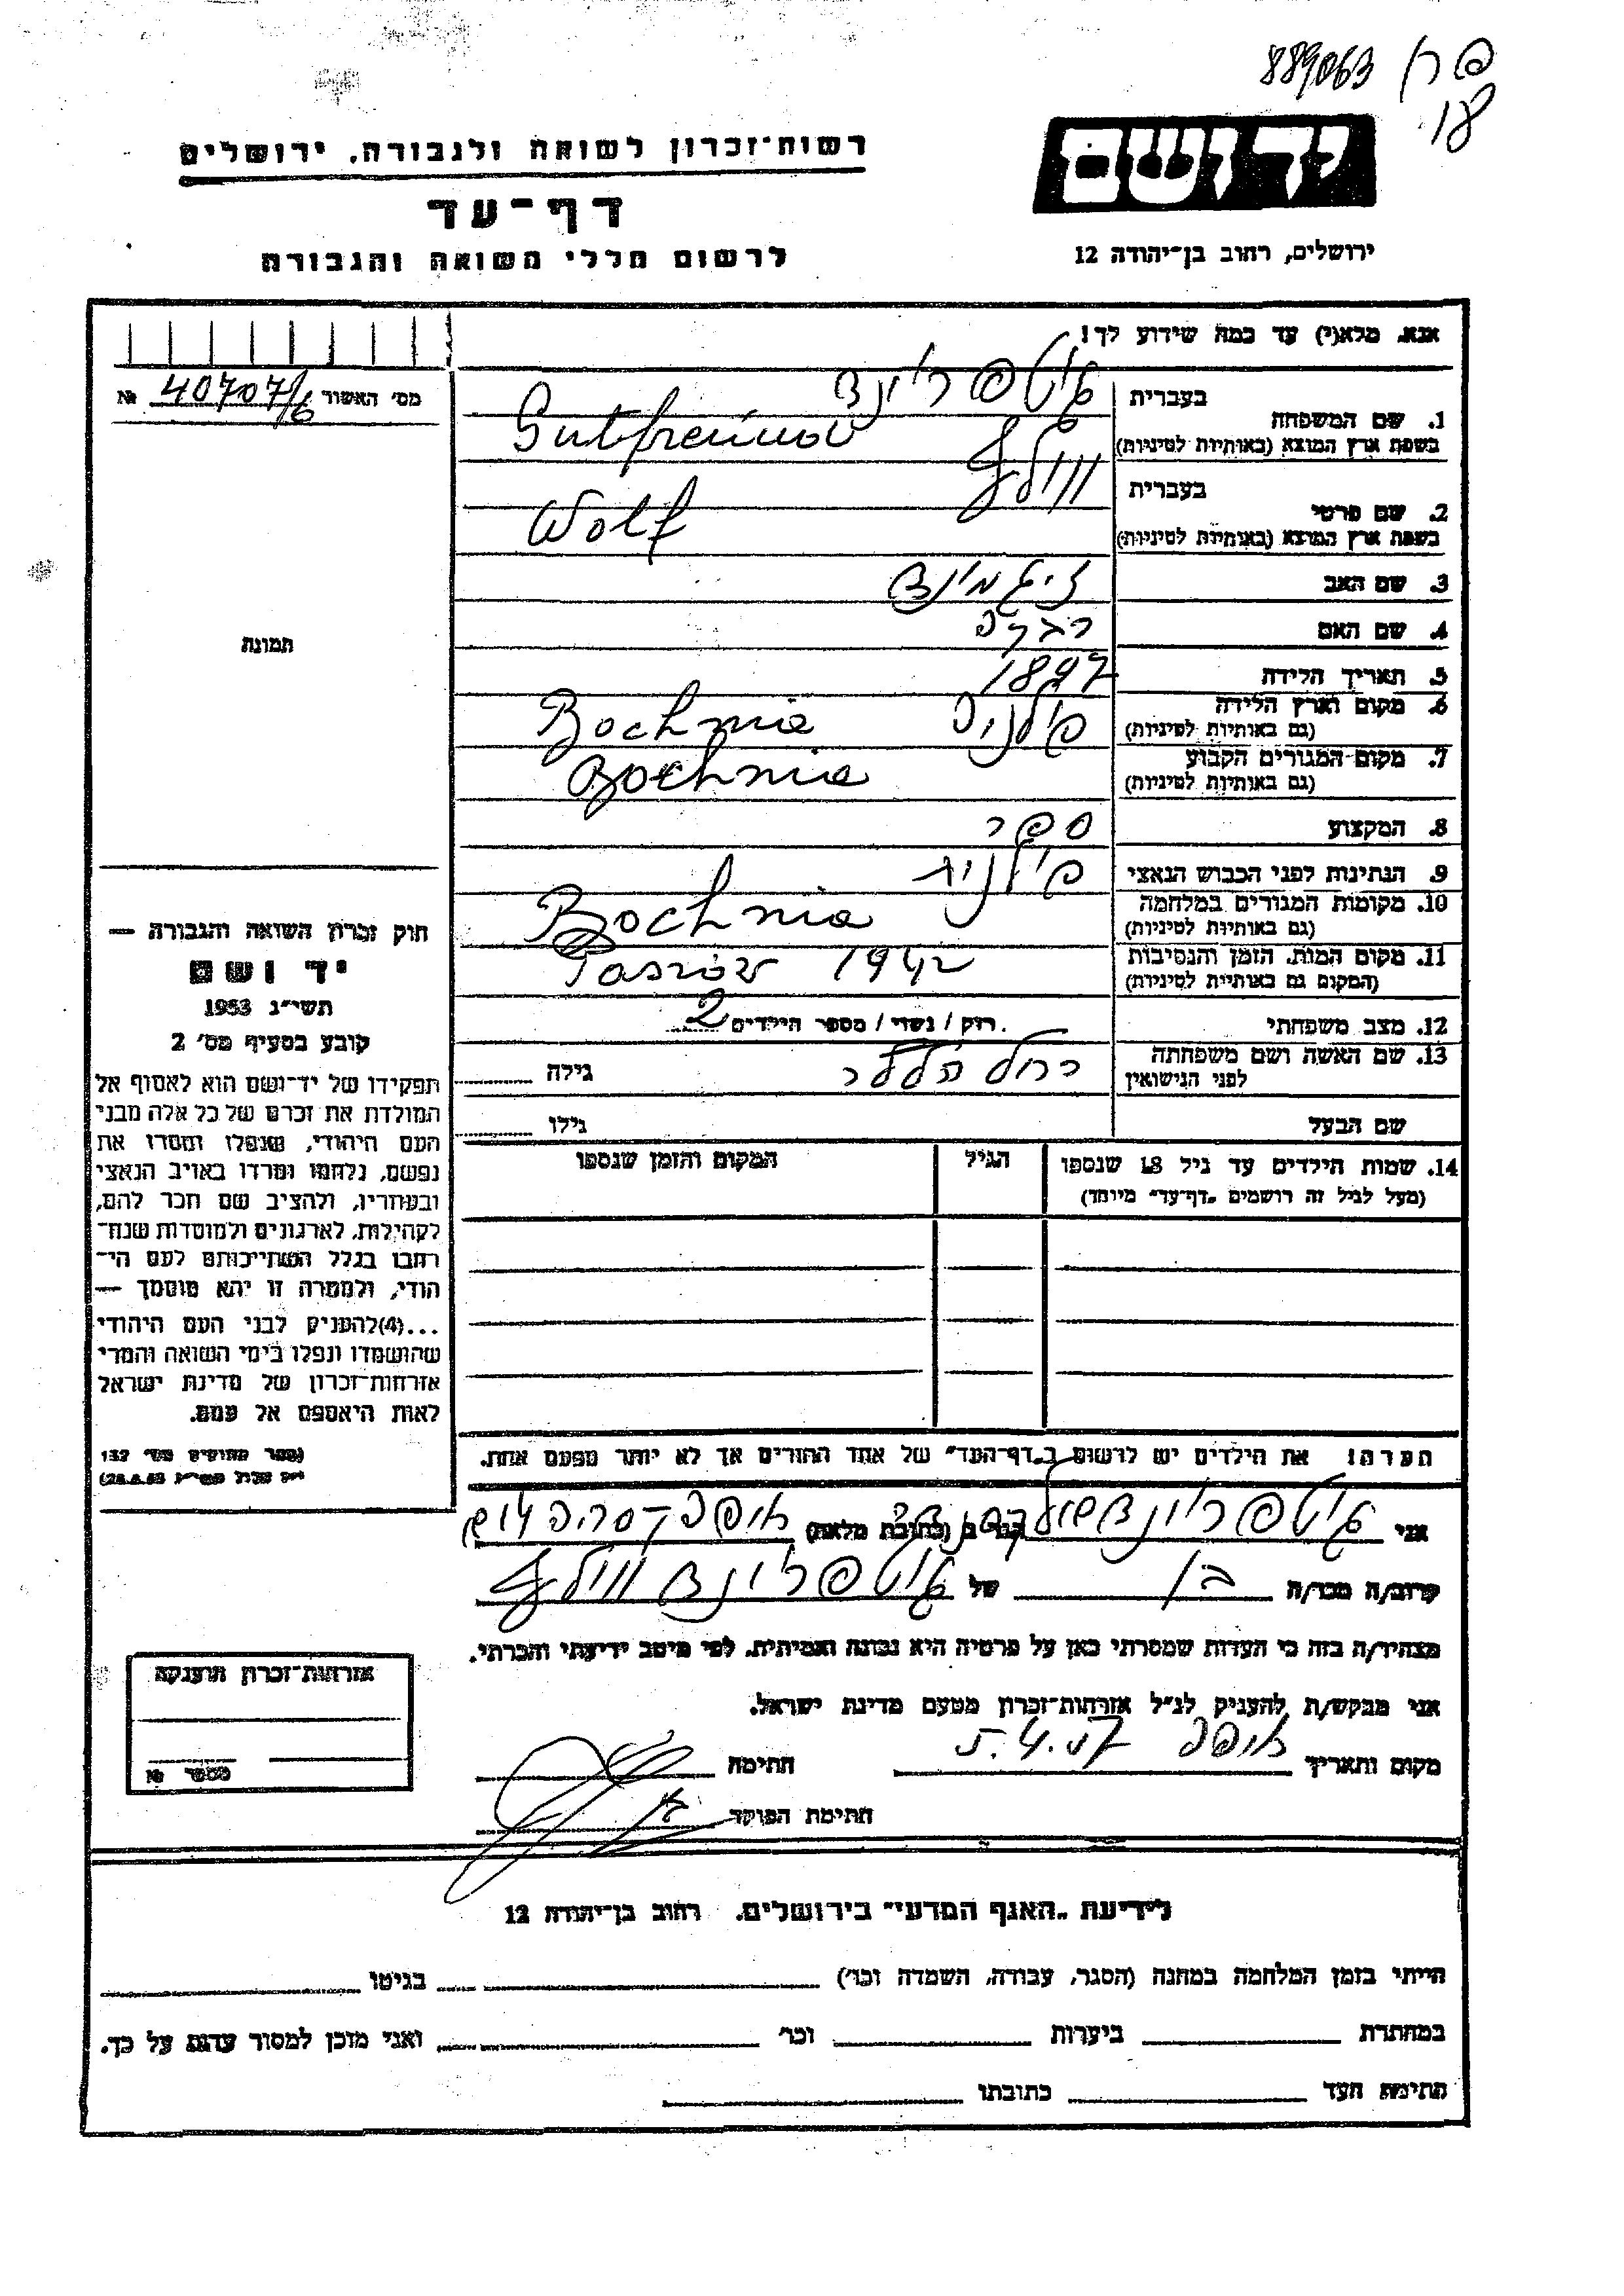 889063
18
יד ושם
רשות־זכרון לשואה ולגבורה, ירושלים
דף־עד
לרשום חללי השואה והגבורה
ירושלים, רחוב בן־יהודה 12
אנא, מלא(י) עד כמה שידוע לך!
מס׳ האשור 40707/6 №
1. שם המשפחה
בעברית גוטפריינד
בשפת ארץ המוצא (באותיות לטיניות) Gutfreund
2. שם פרטי
בעברית וולף
בשפת ארץ המוצא (באותיות לטיניות) Wolf
3. שם האב זיגמונד
4. שם האם רבקה
5. תאריך הלידה 1897
6. מקום וארץ הלידה
(גם באותיות לטיניות) פולניה Bochnia
7. מקום המגורים הקבוע
(גם באותיות לטיניות) Bochnia
8. המקצוע ספר
9. הנתינות לפני הכבוש הנאצי פולנית
10. מקומות המגורים במלחמה
(גם באותיות לטיניות) Bochnia
11. מקום המות, הזמן והנסיבות
(המקום גם באותיות לטיניות) 1942
12. מצב משפחתי רווק / נשוי / מספר הילדים 2
13. שם האשה ושם משפחתה
לפני הנישואין רחל הללר גילה
שם הבעל גילו
14. שמות הילדים עד גיל 18 שנספו
(מעל לגיל זה רושמים „דף־עד״ מיוחד)
הגיל
המקום והזמן שנספו
הערה! את הילדים יש לרשום ב„דף־העד״ של אחד ההורים אך לא יותר מפעם אחת.
תמונה
חוק זכרון השואה והגבורה —
יד ושם
תשי״ג 1953
קובע בסעיף מס׳ 2
תפקידו של יד־ושם הוא לאסוף אל
המולדת את זכרם של כל אלה מבני
העם היהודי, שנפלו ומסרו את
נפשם, נלחמו ומרדו באויב הנאצי
ובעוזריו, ולהציב שם וזכר להם,
לקהילות, לארגונים ולמוסדות שנח־
רבו בגלל השתייכותם לעם הי־
הודי, ולמטרה זו יהא מוסמך —
...(4) להעניק לבני העם היהודי
שהושמדו ונפלו בימי השואה והמרי
אזרחות־זכרון של מדינת ישראל
לאות היאספם אל עמם.
(ספר החוקים מס׳ 132
אני גוטפריינד הגר ב (כתובת מלאה)
קרוב/ה מכר/ה בן של גוטפריינד וולף
מצהיר/ה בזה כי העדות שמסרתי כאן על פרטיה היא נכונה ואמיתית, לפי מיטב ידיעתי והכרתי.
אני מבקש/ת להעניק לנ״ל אזרחות־זכרון מטעם מדינת ישראל.
מקום ותאריך חתימה
חתימת הפוקד
אזרחות־זכרון הוענקה
מספר №
לידיעת „האגף המדעי״ בירושלים, רחוב בן־יהודה 12
הייתי בזמן המלחמה במחנה (הסגר, עבודה, השמדה וכו׳) בגיטו
במחתרת ביערות וכו׳ ואני מוכן למסור עדות על כך.
חתימת העד כתובתו